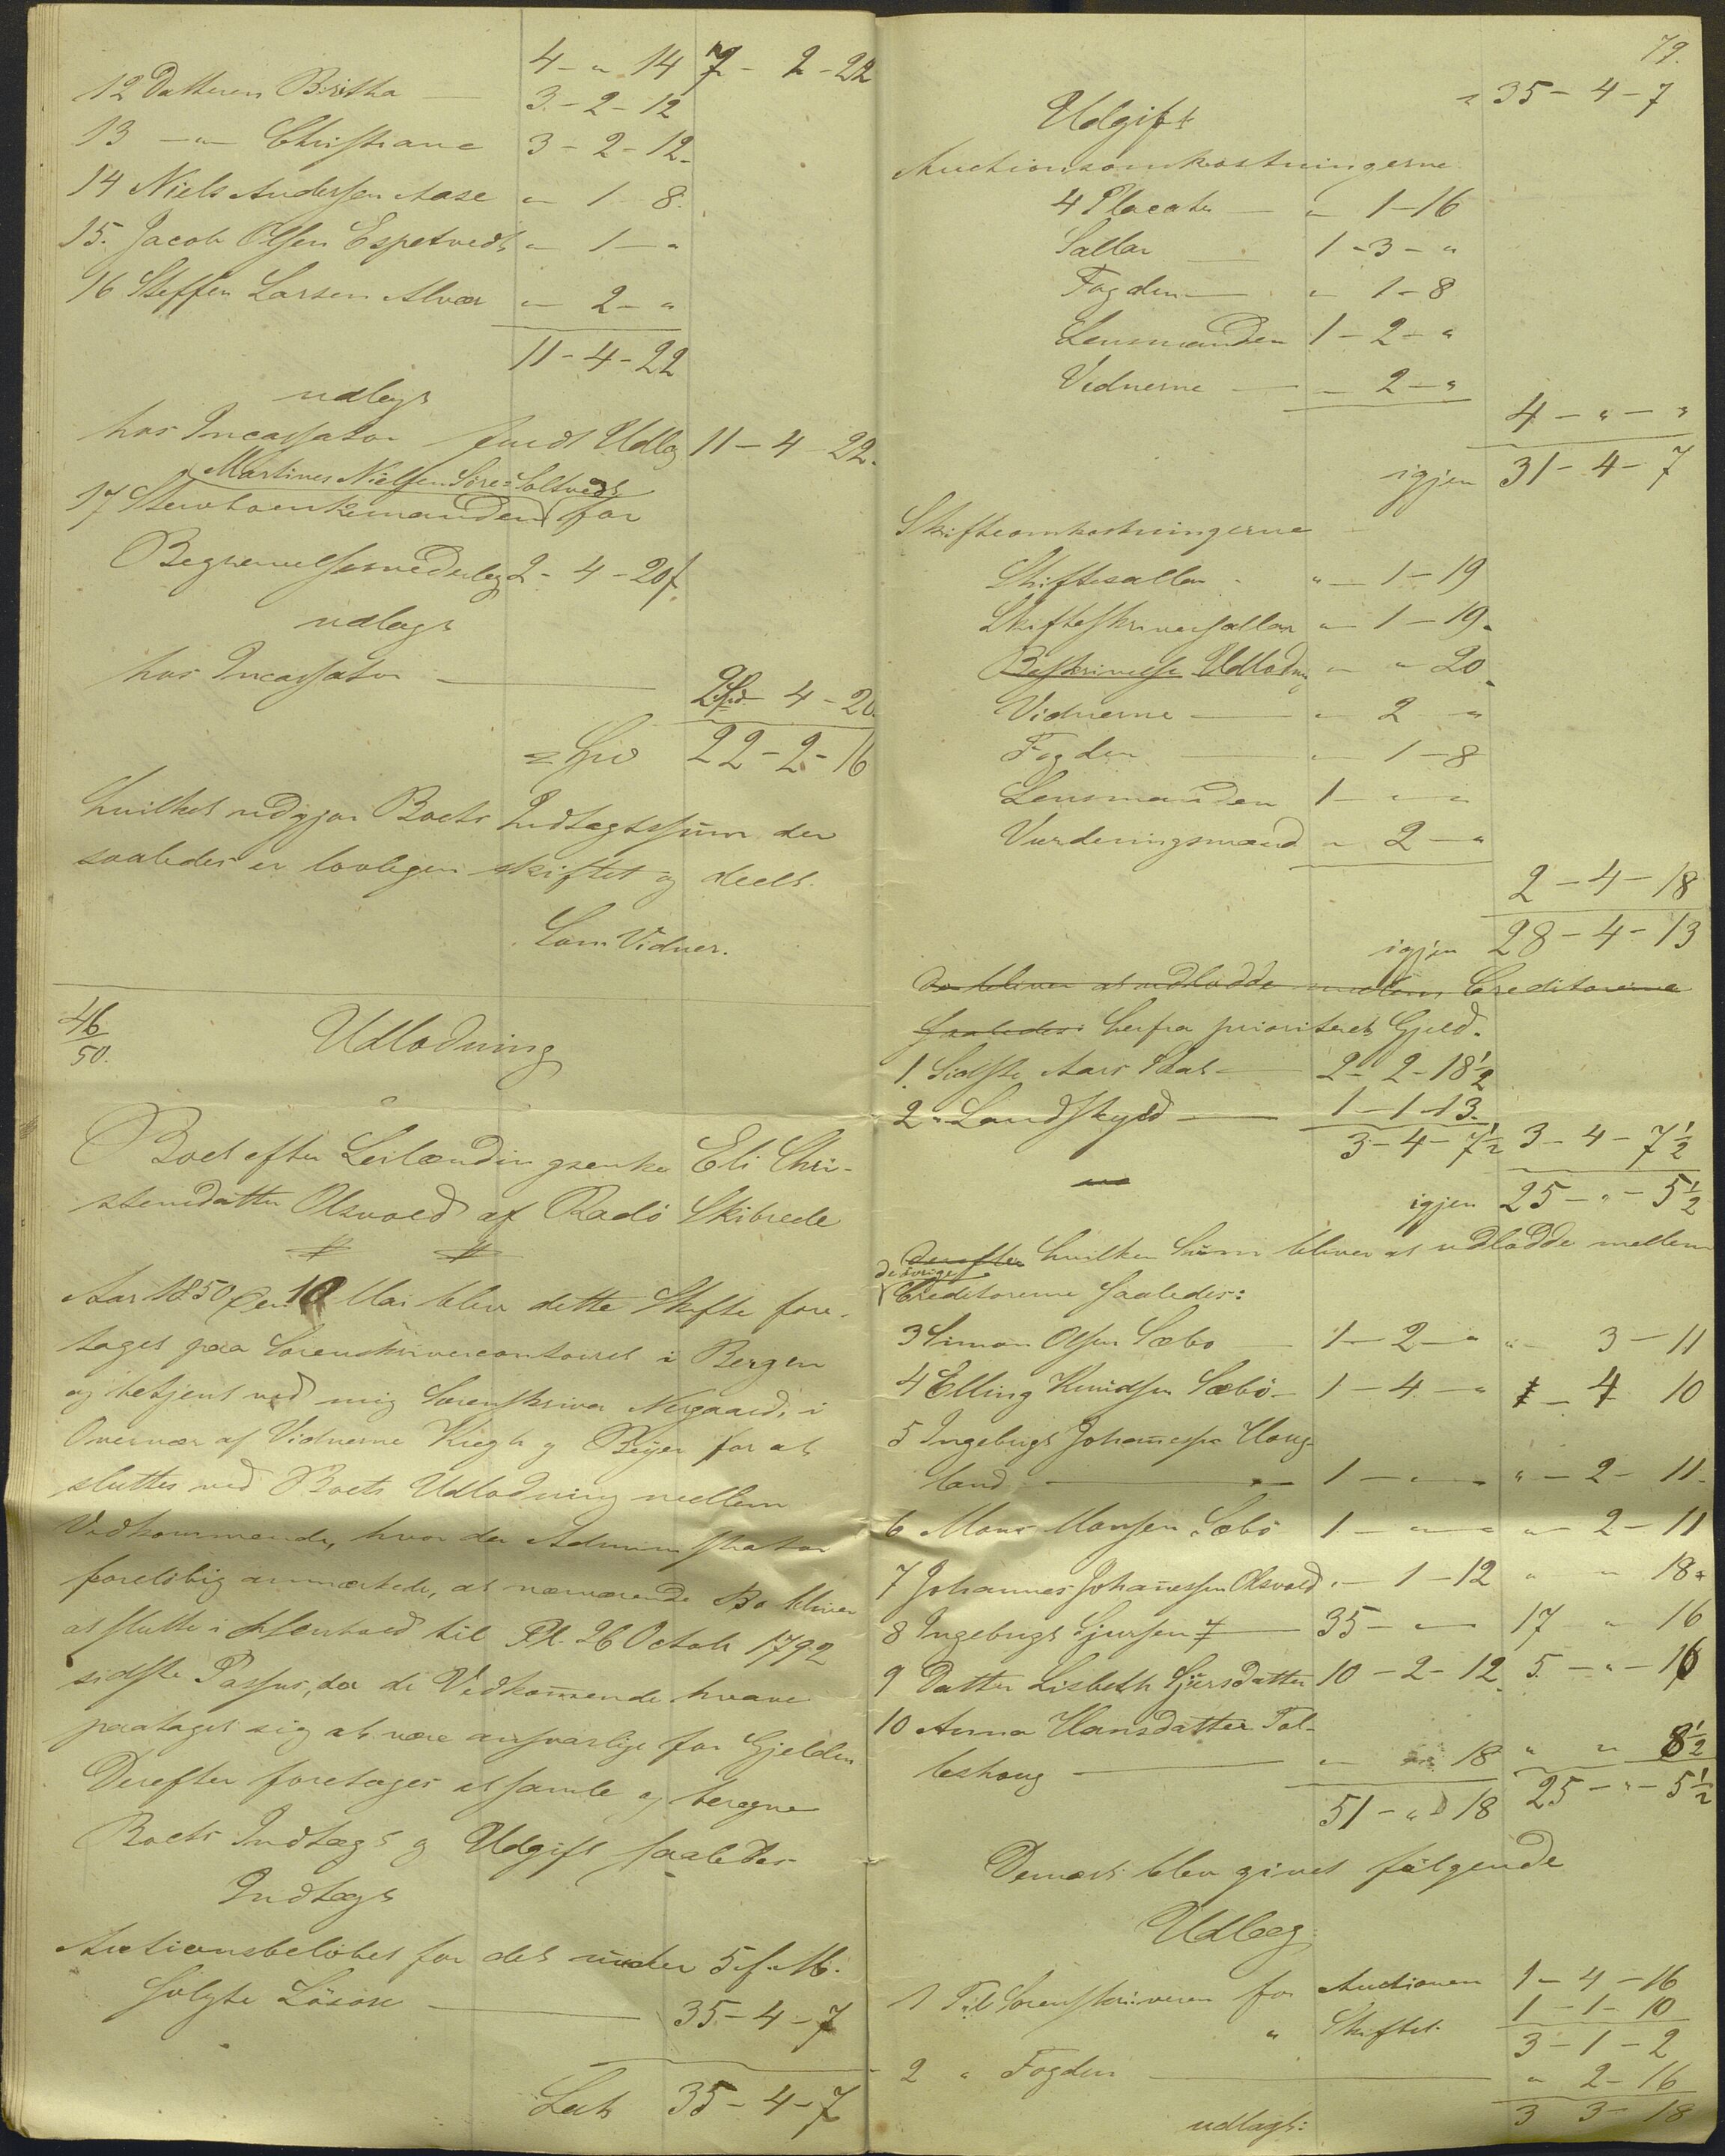 4 - " 14 7 - 2 - 22
12 Datteren Britha — 3 - 2 - 12
13 —"— Christiane 3 - 2 - 12
14 Niels Andersen Aase " 1 - 8
15. Jacob Olsen Espetvedt " 1 - "
16 Steffen Larsen Alver " 2 - "
11 - 4 - 22
udlagt
hos Incassator Udlæg 11 - 4 - 22.
Martines Nielsen Søre-Toltvedt
17 Stervboenkemanden for
Begravelsesvederlag 2 - 4 - 20
udlagt
hos Incassator — 2 Spd 4 - 20
= Spd 22 - 2 - 16
hvilket udgjør Boets Indtægtssum der
saaledes er lovligen skiftet og deelt.
Som Vidner.
46/50.
Udlodning
i
Boet efter Leilændingsenke Eli Chri-
stensdatter Olsvold af Radö Skibrede
Aar 1850 den 10 Mai blev dette Skifte fore-
taget paa Sorenskrivercontoiret i Bergen
og betjent ved mig Sorenskriver Nergaard, i
Overvær af Vidnerne Krogh og Beyer for at
sluttes med Boets Udlodning mellem
Vedkommende, hvor da Administrator
foreløbig anmærkede, at nærværende Bo bliver
at slutte i Henhold til Pl. 26 Octob 1792
sidste Passus, da de Vedkommende have
paataget sig at være ansvarlige for Gjelden
Derefter foretages at samle og beregne
Boets Indtægt og Udgift saaledes
Indtægt
Auctionsbeløbet for det under 5 f. M.
solgte Løsøre — 35 - 4 - 7
Lat. 35 - 4 - 7
79.
= 35 - 4 - 7
Udgift
Auctionsomkostningerne
4 Placater — " 1 - 16
Sallar — 1 - 3 - "
Fogden — " 1 - 8
Lensmanden 1 - 2 - "
Vidnerne — " 2 - "
4 - " - "
igjen 31 - 4 - 7
Skifteomkostningerne
Skiftesallar " - 1 - 19
Skifteskriversallar " - 1 - 19.
Beskrivelse Udlodn " - " 20
Vidnerne — " 2 "
Fogden — " 1 - 8
Lensmanden 1 - " - "
Vurderingsmænd " 2 - "
2 - 4 - 18
igjen 28 - 4 - 13
der bliver at udlodde mellem Creditorerne
saaledes: herfra prioriteret Gjeld.
1. Sidste Aars Skat — 2 - 2 - 18 1/2
2 " Landskyld — 1 - 1 - 13
3 - 4 - 7 1/2 3 - 4 - 7 1/2
igjen 25 - " - 5 1/2
derefter hvilken Sum bliver at udlodde mellem
de övrige
Creditorerne saaledes:
3 Simon Olsen Sæbo — 1 - 2 - " " - 3 - 11
4 Elling Knudsen Sæbö — 1 - 4 - " " - 4 10
5 Ingebrigt Johannessen Houg-
land — 1 - " - " " - 2 - 11.
6 Mons Monsen Sæbö 1 - " - " " - 2 - 11
7 Johannes Johannessen Olsvold " - 1 - 12 " " 18 "
8 Ingebrigt Sjursen — 35 - " — 17 " 16
9 Datter Lisbeth Sjursdatter 10 - 2 - 12. 5 - " - 16
10 Anna Hansdatter Tol-
leshoug — " " 18 " " 8 1/2
51 - " - 18 25 - " - 5 1/2
Dernæst blev givet følgende
Udlæg
1 Til Sorenskriveren for Auctionen 1 - 4 - 16
" Skiftet 1 - 1 - 10
3 - 1 - 2
2 " Fogden — " 2 - 16
3 3 - 18
udlagt: